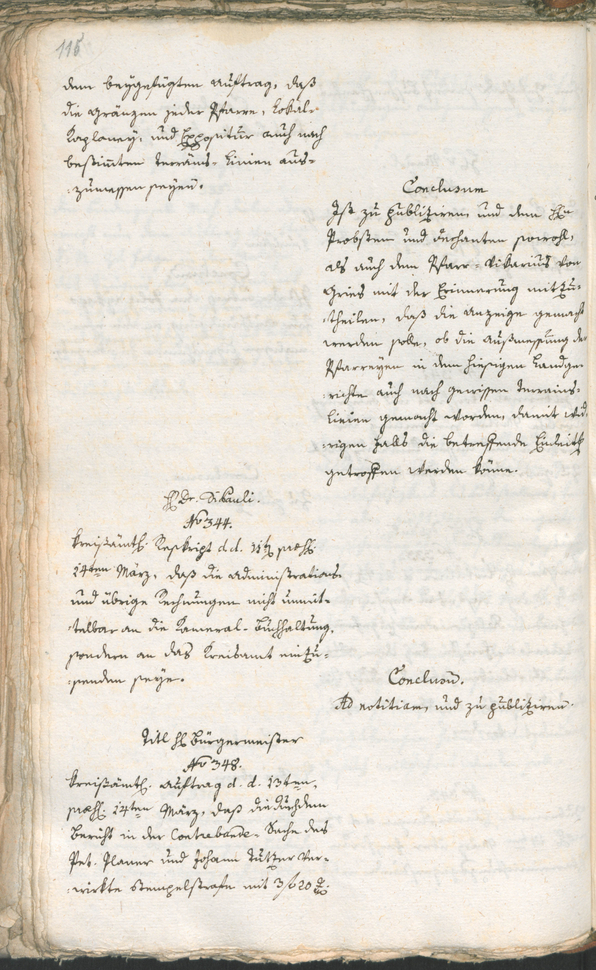 116
dem beygefügten Auftrag, daß
die Gränzen jeder Pfarre, Lokal-
Kaplaney, und Expositur auch nach
bestimten Terrains-Linien aus-
zumessen seyen.
Conclusum
Ist zu publiziren, und dem H
Probsten und Dechanten sowohl,
als auch dem Pfarr-Vikarius von
Gries mit der Erinnerung mitzu-
theilen, daß die Anzeige gemacht
werden solle, ob die Ausmessung der
Pfarreyen in dem hiesigen Landge-
richte auch nach gewissen Terrains-
Linien gemacht worden, damit wid-
rigen Falls die betreffende
getroffen werden könne.
H Dr.
No 344.
Kreisämtl. Reskript d. d. 11 præs.
14ten März, daß die Administrations-
und übrige Rechnungen nicht unmit-
telbar an die Kameral-Buchhaltung,
sondern an das Kreisamt einzu-
senden seye.
Conclusū.
Ad notitiam, und zu publiziren.
Titl H Bürgermeister
No 348.
Kreisämtl. Auftrag d. d. 13ten,
præs. 14ten März, daß die durch den
Bericht in der Contrabande-Sache des
Pet. Planer und Johann Tutzer ver-
wirkte Stempelstrafe mit 3 f 20